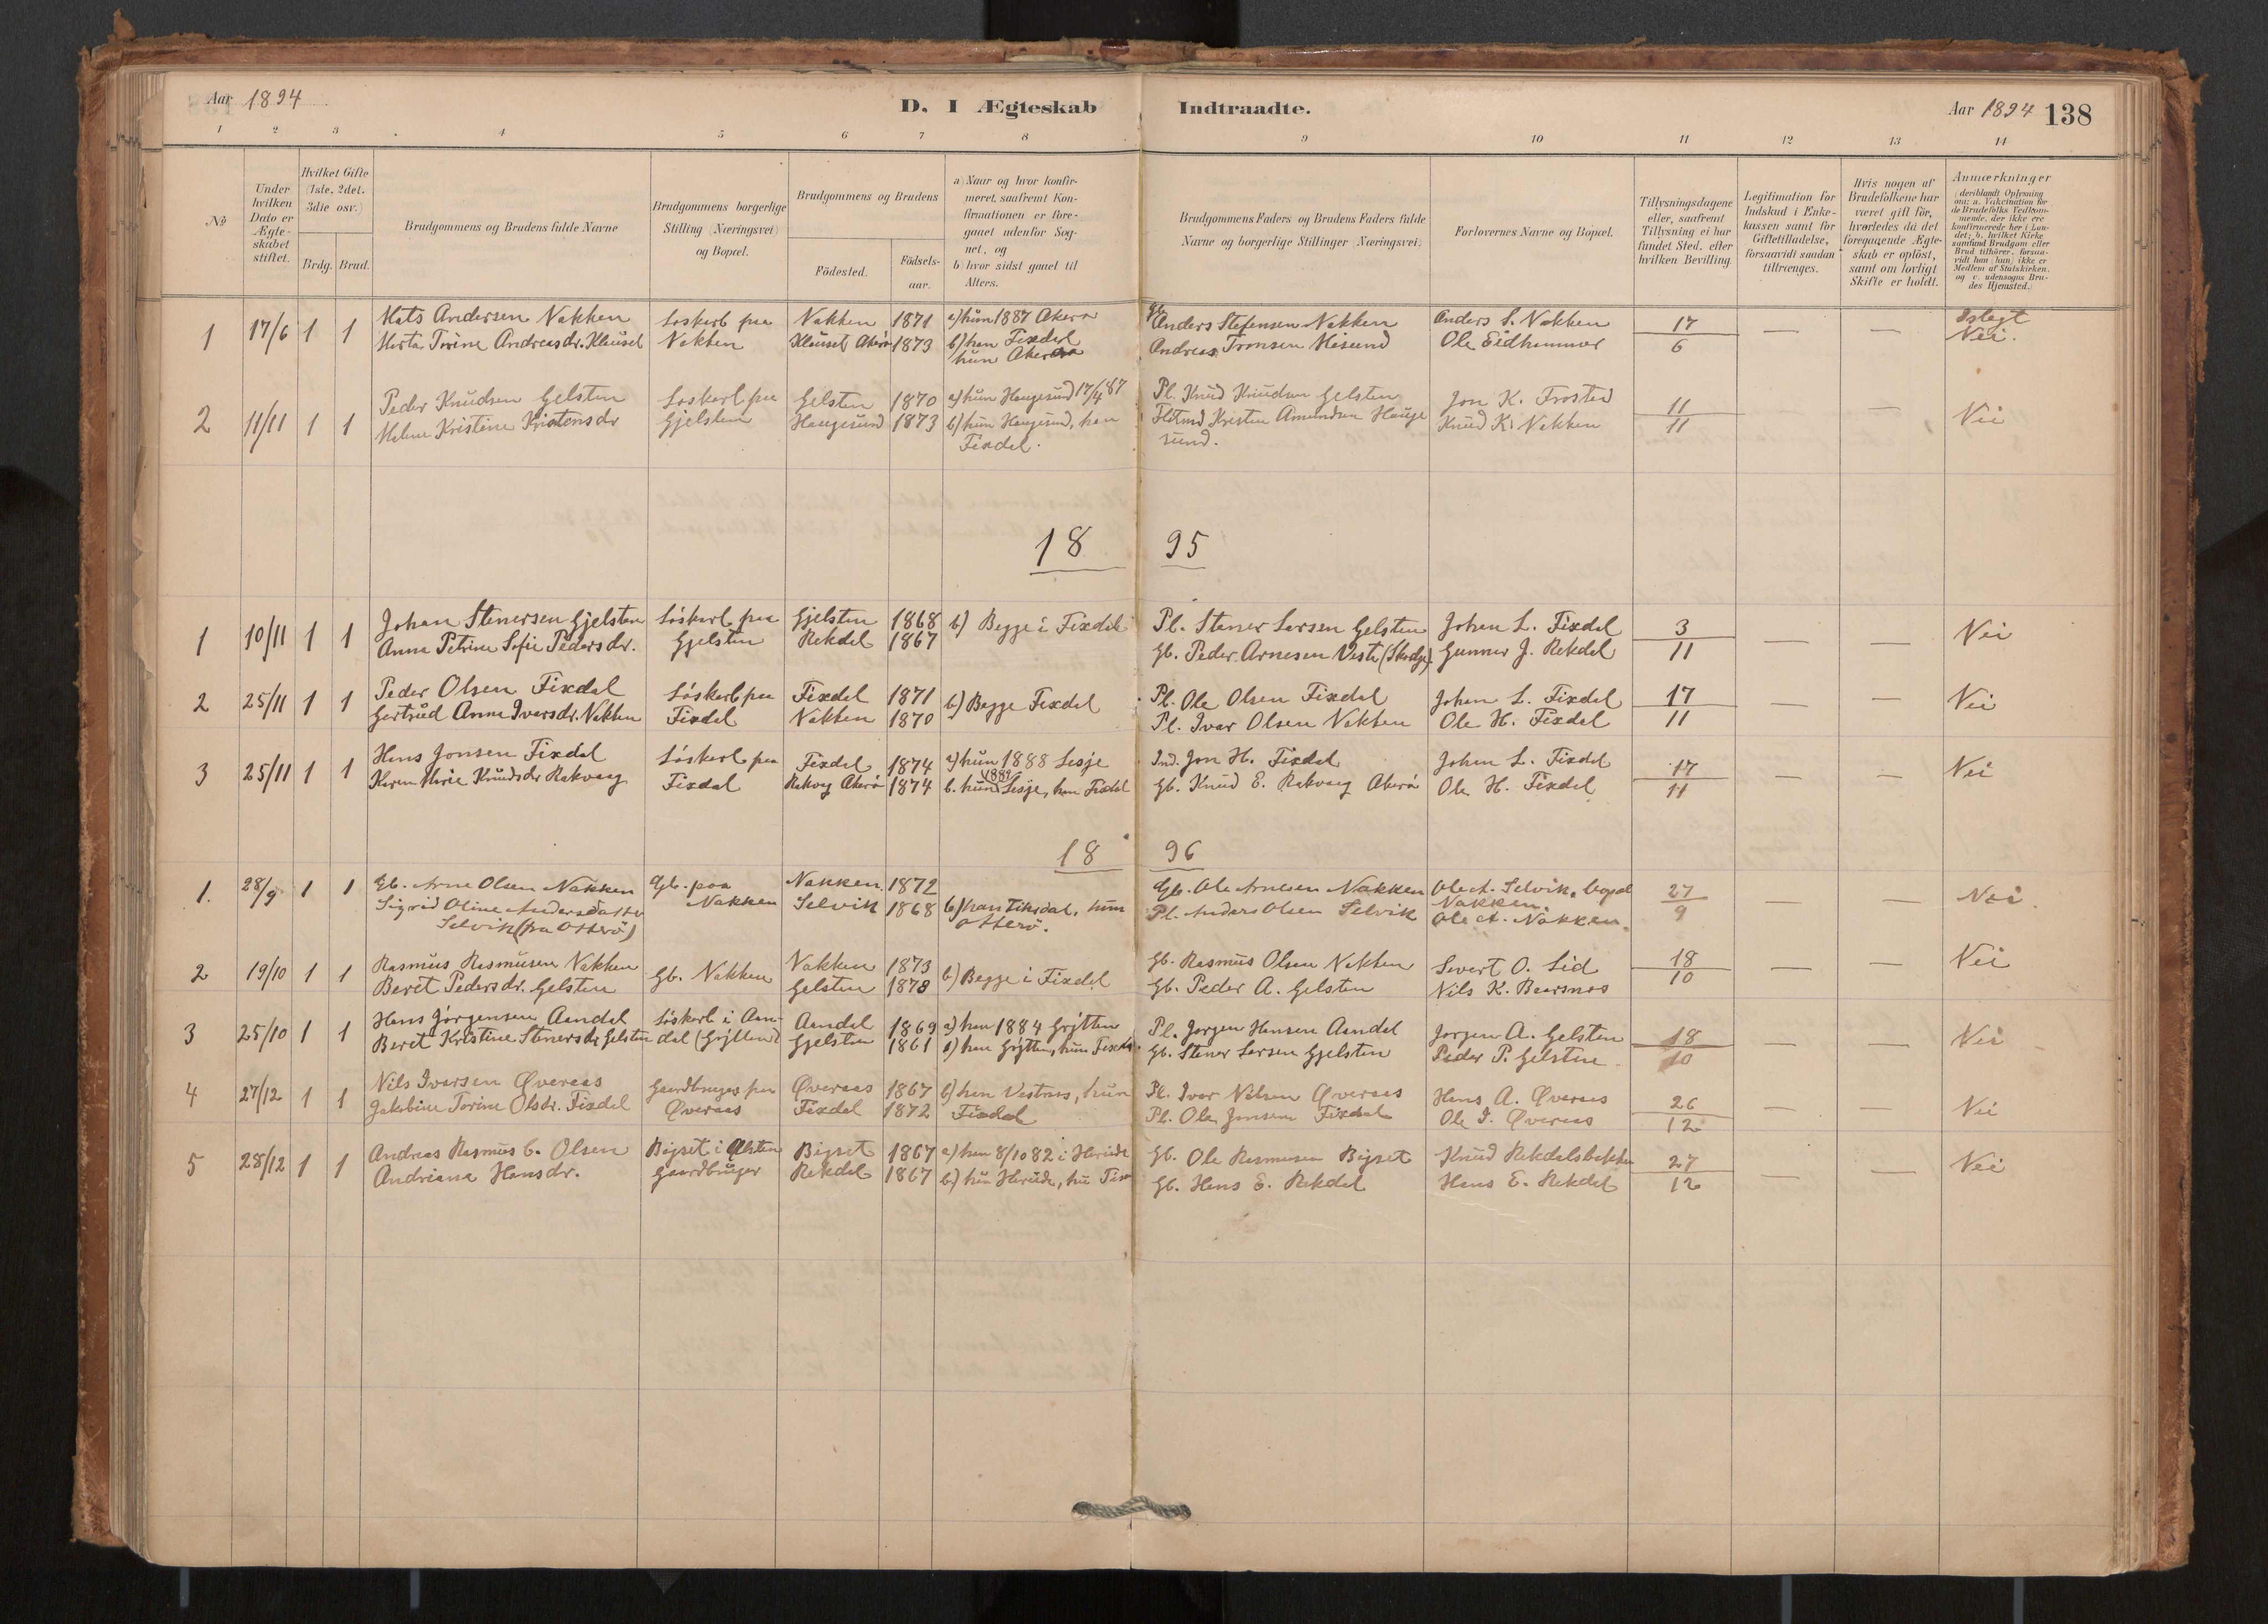 Aar 1894
D. I Ægteskab Indtraadte.
Aar 1894 138
1 2 3 4 5 6 7 8 9 10 11 12 13 14
No
Under hvilken Dato er Ægteskabet stiftet.
Hvilket Gifte (1ste, 2det, 3die osv.)
Brdg. Brud.
Brudgommens og Brudens fulde Navne
Brudgommens borgerlige Stilling (Næringsvei) og Bopæl.
Brudgommens og Brudens
Födested.
Födsels-aar.
a) Naar og hvor konfirmeret, saafremt Konfirmationen er foregaaet udenfor Sognet, og
b) hvor sidst gaaet til Alters.
Brudgommens Faders og Brudens Faders fulde Navne og borgerlige Stillinger (Næringsvei).
Forlovernes Navne og Bopæl.
Tillysningsdagene eller, saafremt Tillysning ei har fundet Sted, efter hvilken Bevilling.
Legitimation for Indskud i Enkekassen samt for Giftetilladelse, forsaavidt saadan tiltrænges.
Hvis nogen af Brudefolkene har været gift för, hvorledes da det foregaaende Ægteskab er oplöst, samt om lovligt Skifte er holdt.
Anmærkninger
(deriblandt Oplysning om: a. Vakcination for de Brudefolks Vedkommende, der ikke ere konfirmerede her i Landet; b. hvilket Kirkesamfund Brudgom eller Brud tilhörer, forsaavidt han (hun) ikke er Medlem af Statskirken, og c. udensogns Brudes Hjemsted.)
1 17/6 1 1 Mats Andersen Nakken Löskarl paa Nakken 1871 a) hun 1887 Akerö Gb. Anders Stefensen Nakken Anders S. Nakken 17/6 — — Islagt
Marta Torine Andreasdr. Klauset Nakken Klauset Akerö 1873 b) han Fixdal Andreas Tronsen Misund Ole Eidhammer Nei.
hun Akerö
2 11/11 1 1 Peder Knudsen Gelsten Löskarl paa Gelsten 1870 a) hun Haugesund 17/4 87 Pl. Knud Knudsen Gelsten Jon K. Frostad 11/11 — Nei
Helene Kristine Kristensdr Gjelsten Haugesund 1873 b) hun Haugesund, han Kristen Amundsen Hauge Knud K. Nakken
Fixdal. sund.
18 95
1 10/11 1 1 Johan Stenersen Gjelsten Löskarl paa Gjelsten 1868 b) Begge i Fixdal Pl. Stener Larsen Gelsten Johan L. Fixdal 3/11 — — Nei
Anne Petrine Sofie Pedersdr. Gjelsten Rekdal 1867 Gb. Peder Arnesen Veste (Skodje) Gunner J. Rekdal
2 25/11 1 1 Peder Olsen Fixdal Löskarl paa Fixdal 1871 b) Begge Fixdal Pl. Ole Olsen Fixdal Johan L. Fixdal 17/11 — — Nei
Gertrud Anne Iversdr. Nakken Fixdal Nakken 1870 Pl. Ivar Olsen Nakken Ole H. Fixdal
3 25/11 1 1 Hans Jonsen Fixdal Löskarl paa Fixdal 1874 a) hun 1888 Lesje Ind. Jon H. Fixdal Johan L. Fixdal 17/11 — — Nei
Karen Marie Knudsdr Rakvaag Fixdal Rakvag Akerö 1874 b. hun 1889 Lesje, han Fixdal Gb. Knud E. Rakvaag Akerö Ole H. Fixdal
18 96
1. 28/9 1 1 Gb. Arne Olsen Nakken Gb. paa Nakken. 1872 Gb. Ole Arnesen Nakken Ole A. Selvik, 27/9 — — Nei.
Sigrid Oline Andersdatter Nakken Selvik 1868 b) han Fiksdal, hun Pl. Anders Olsen Selvik Nakken.
Selvik (fra Otterö) Otterö. Ole A. Nakken.
2 19/10 1 1 Rasmus Rasmusen Nakken Gb. Nakken Nakken 1873 b) Begge i Fixdal Gb. Rasmus Olsen Nakken Severt O. Lid 18/10 — — Nei
Beret Pedersdr. Gelsten Gelsten 1878 Gb. Peder A. Gelsten Nils K. Baarsnes
3 25/10 1 1 Hans Jörgensen Aandal Löskarl i Aan- Aandal 1869 a) han 1884 Grytten Pl. Jorgen Hansen Aandal Jorgen A. Gelsten 18/10 — — Nei
Beret Kristine Stenersdr Gelsten dal (Grytten) Gjelsten 1861 b) han Grytten, hun Fixdal Gb. Stener Larsen Gjelsten Peder P. Gelsten
4 27/12 1 1 Nils Ivarsen Øveraas Gaardbruger paa Øveraas 1867 b) han Vestnes, hun Pl. Ivar Nilsen Øveraas Hans A. Øveraas 26/12 — — Nei
Jakobine Torine Olsdr. Fixdal Øveraas Fixdal 1872 Fixdal Pl. Ole Jonsen Fixdal Ole I. Øveraas
5 28/12 1 1 Andreas Rasmus C. Olsen Bigset i Ulsten Bigset 1867 a) han 8/10 82 i Herøide Gb. Ole Rasmusen Bigset Knud Rekdalsbakken 27/12 — — Nei
Andriana Hansdr. Gaardbruger Rekdal 1867 Gb. Hans E. Rekdal Hans E. Rekdal